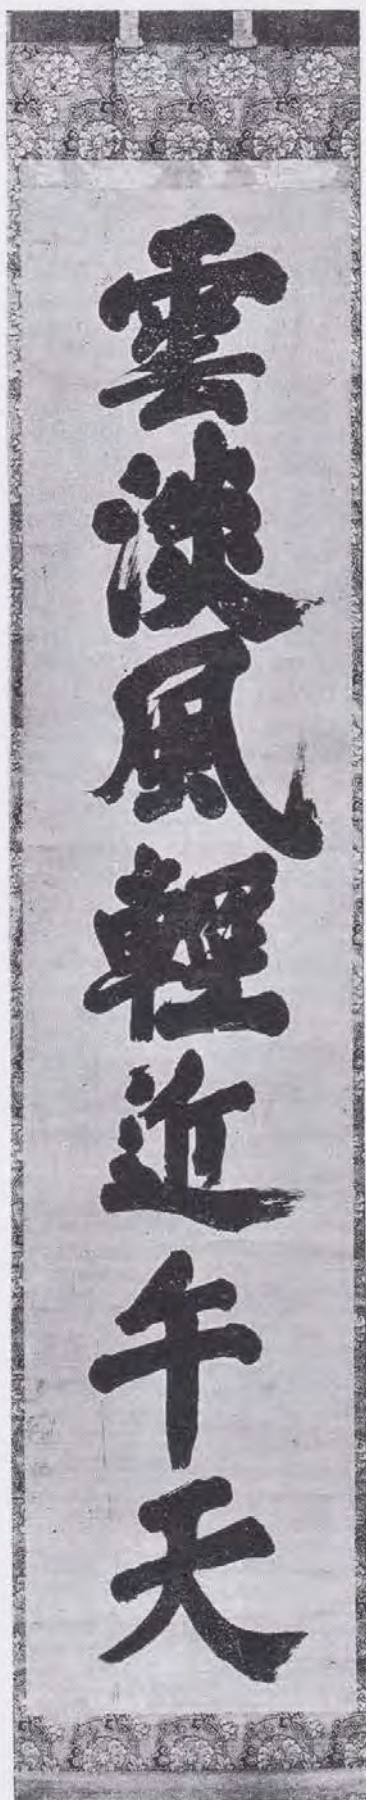 雲淡風輕近午天